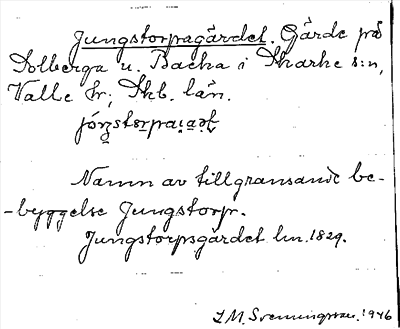 Jungstorpagärdet. Gärde på
Solberga u. Backa i Skarke s:n,
Valle hr; Skb. län.
Namn av tillgränsande be-
-byggelse Jungstorp.
Jungstorpsgärdet lm. 1829.
I.M. Svenningsson. 1946